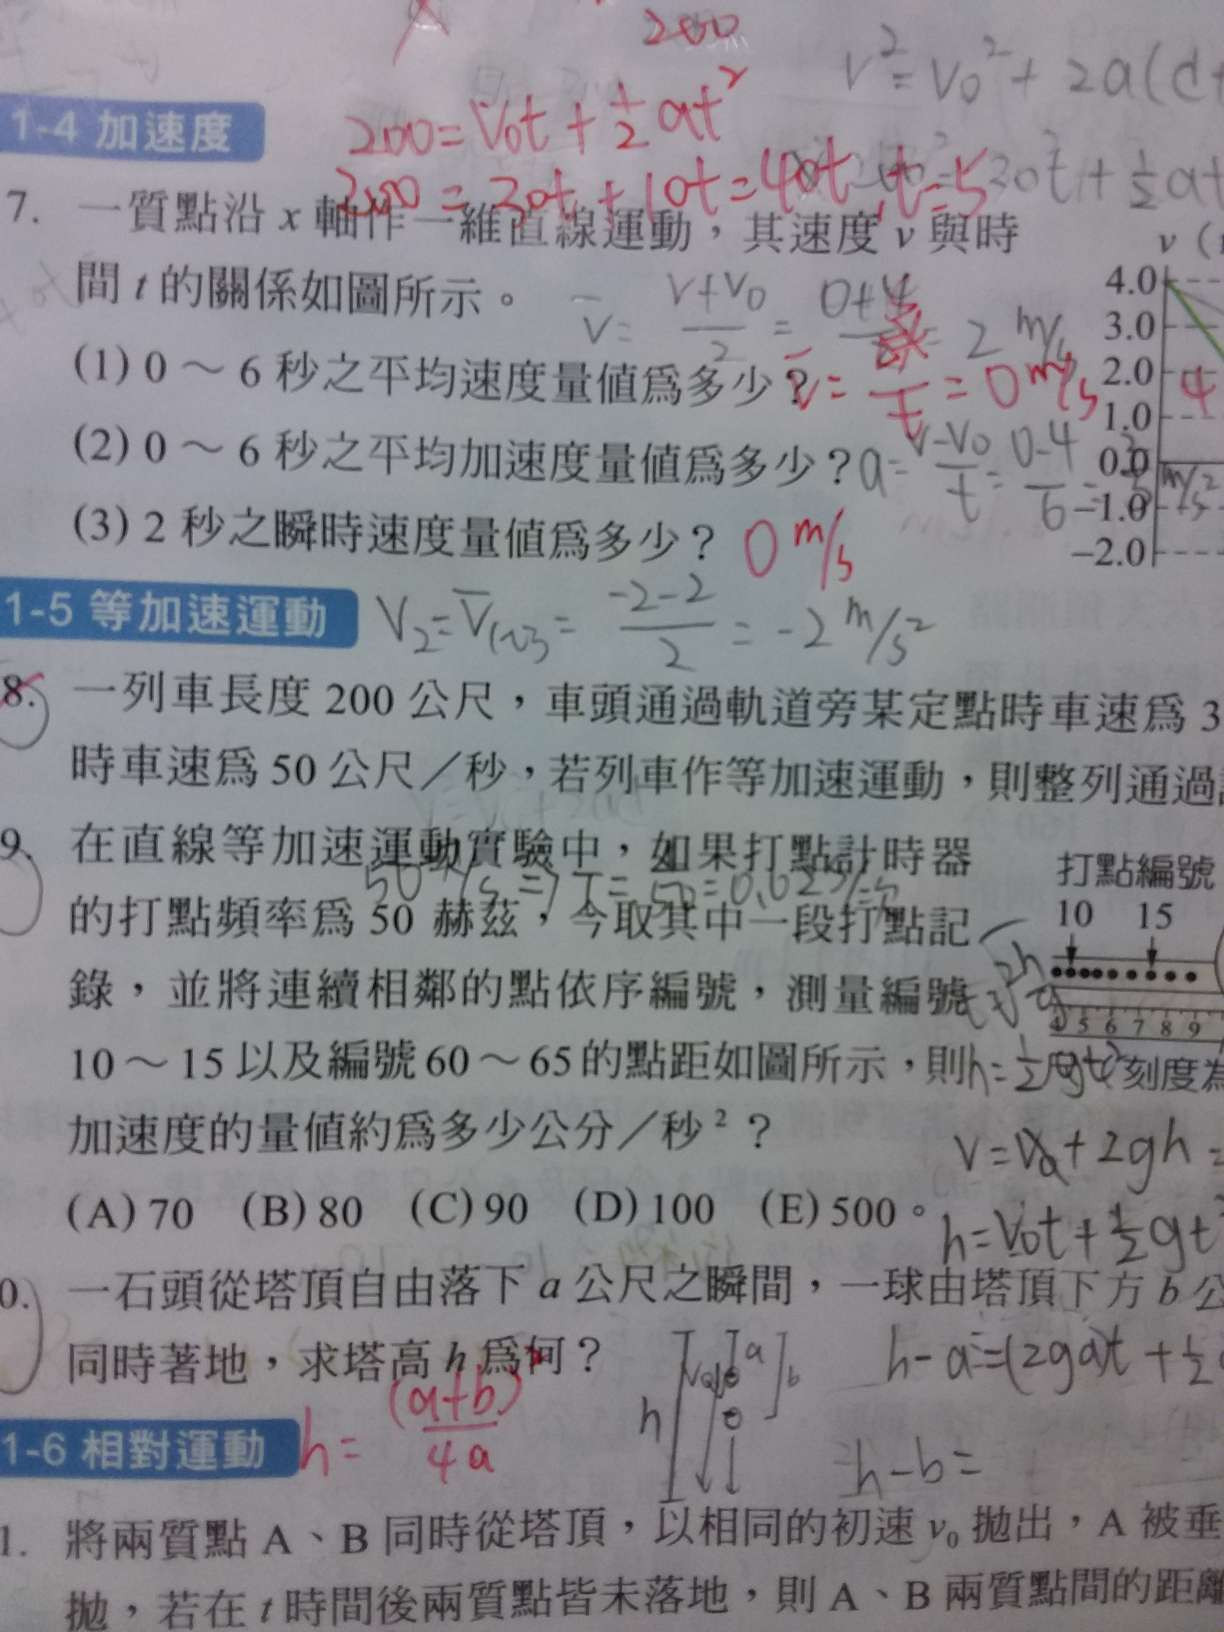 200
v²=v₀²+2a(d
1-4 加速度
200=v₀t+½at²
200=30t+10t=40t, t=5
7. 一質點沿 x 軸作一維直線運動，其速度 v 與時
v (
間 t 的關係如圖所示。
v̄= v+v₀/2 = 0+4/ = 2 m/s
4.0
3.0
(1) 0～6 秒之平均速度量值為多少？
= 0 m/s
2.0
4
1.0
(2) 0～6 秒之平均加速度量值為多少？
a= v-v₀/t = 0-4/6 =
m/s²
0.0
-1.0
(3) 2 秒之瞬時速度量值為多少？
0 m/s
-2.0
1-5 等加速運動
V₂=V̄₁~₃= -2-2/2 = -2 m/s²
8. 一列車長度 200 公尺，車頭通過軌道旁某定點時車速為 3
時車速為 50 公尺／秒，若列車作等加速運動，則整列通過
9. 在直線等加速運動實驗中，如果打點計時器
打點編號
的打點頻率為 50 赫茲，今取其中一段打點記
10 15
錄，並將連續相鄰的點依序編號，測量編號
5 6 7 8 9
10～15 以及編號 60～65 的點距如圖所示，則
刻度為
加速度的量值約為多少公分／秒²？
(A) 70 (B) 80 (C) 90 (D) 100 (E) 500。
h=v₀t+½gt²
0. 一石頭從塔頂自由落下 a 公尺之瞬間，一球由塔頂下方 b 公
同時著地，求塔高 h 為何？
a
b
h
h-a=(2ga)t+½
h= (a+b)/4a
h-b=
1-6 相對運動
1. 將兩質點 A、B 同時從塔頂，以相同的初速 v₀ 拋出，A 被垂
拋，若在 t 時間後兩質點皆未落地，則 A、B 兩質點間的距離